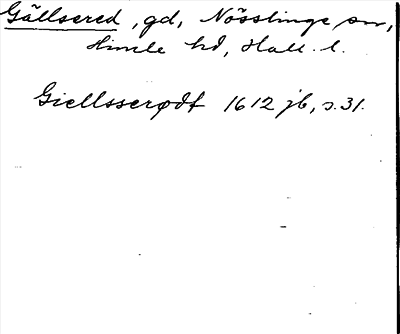 Gällsered, gd, Nösslinge sn,
Himle hd, Hall. l.
Giellsserødt 1612 jb, s. 31.